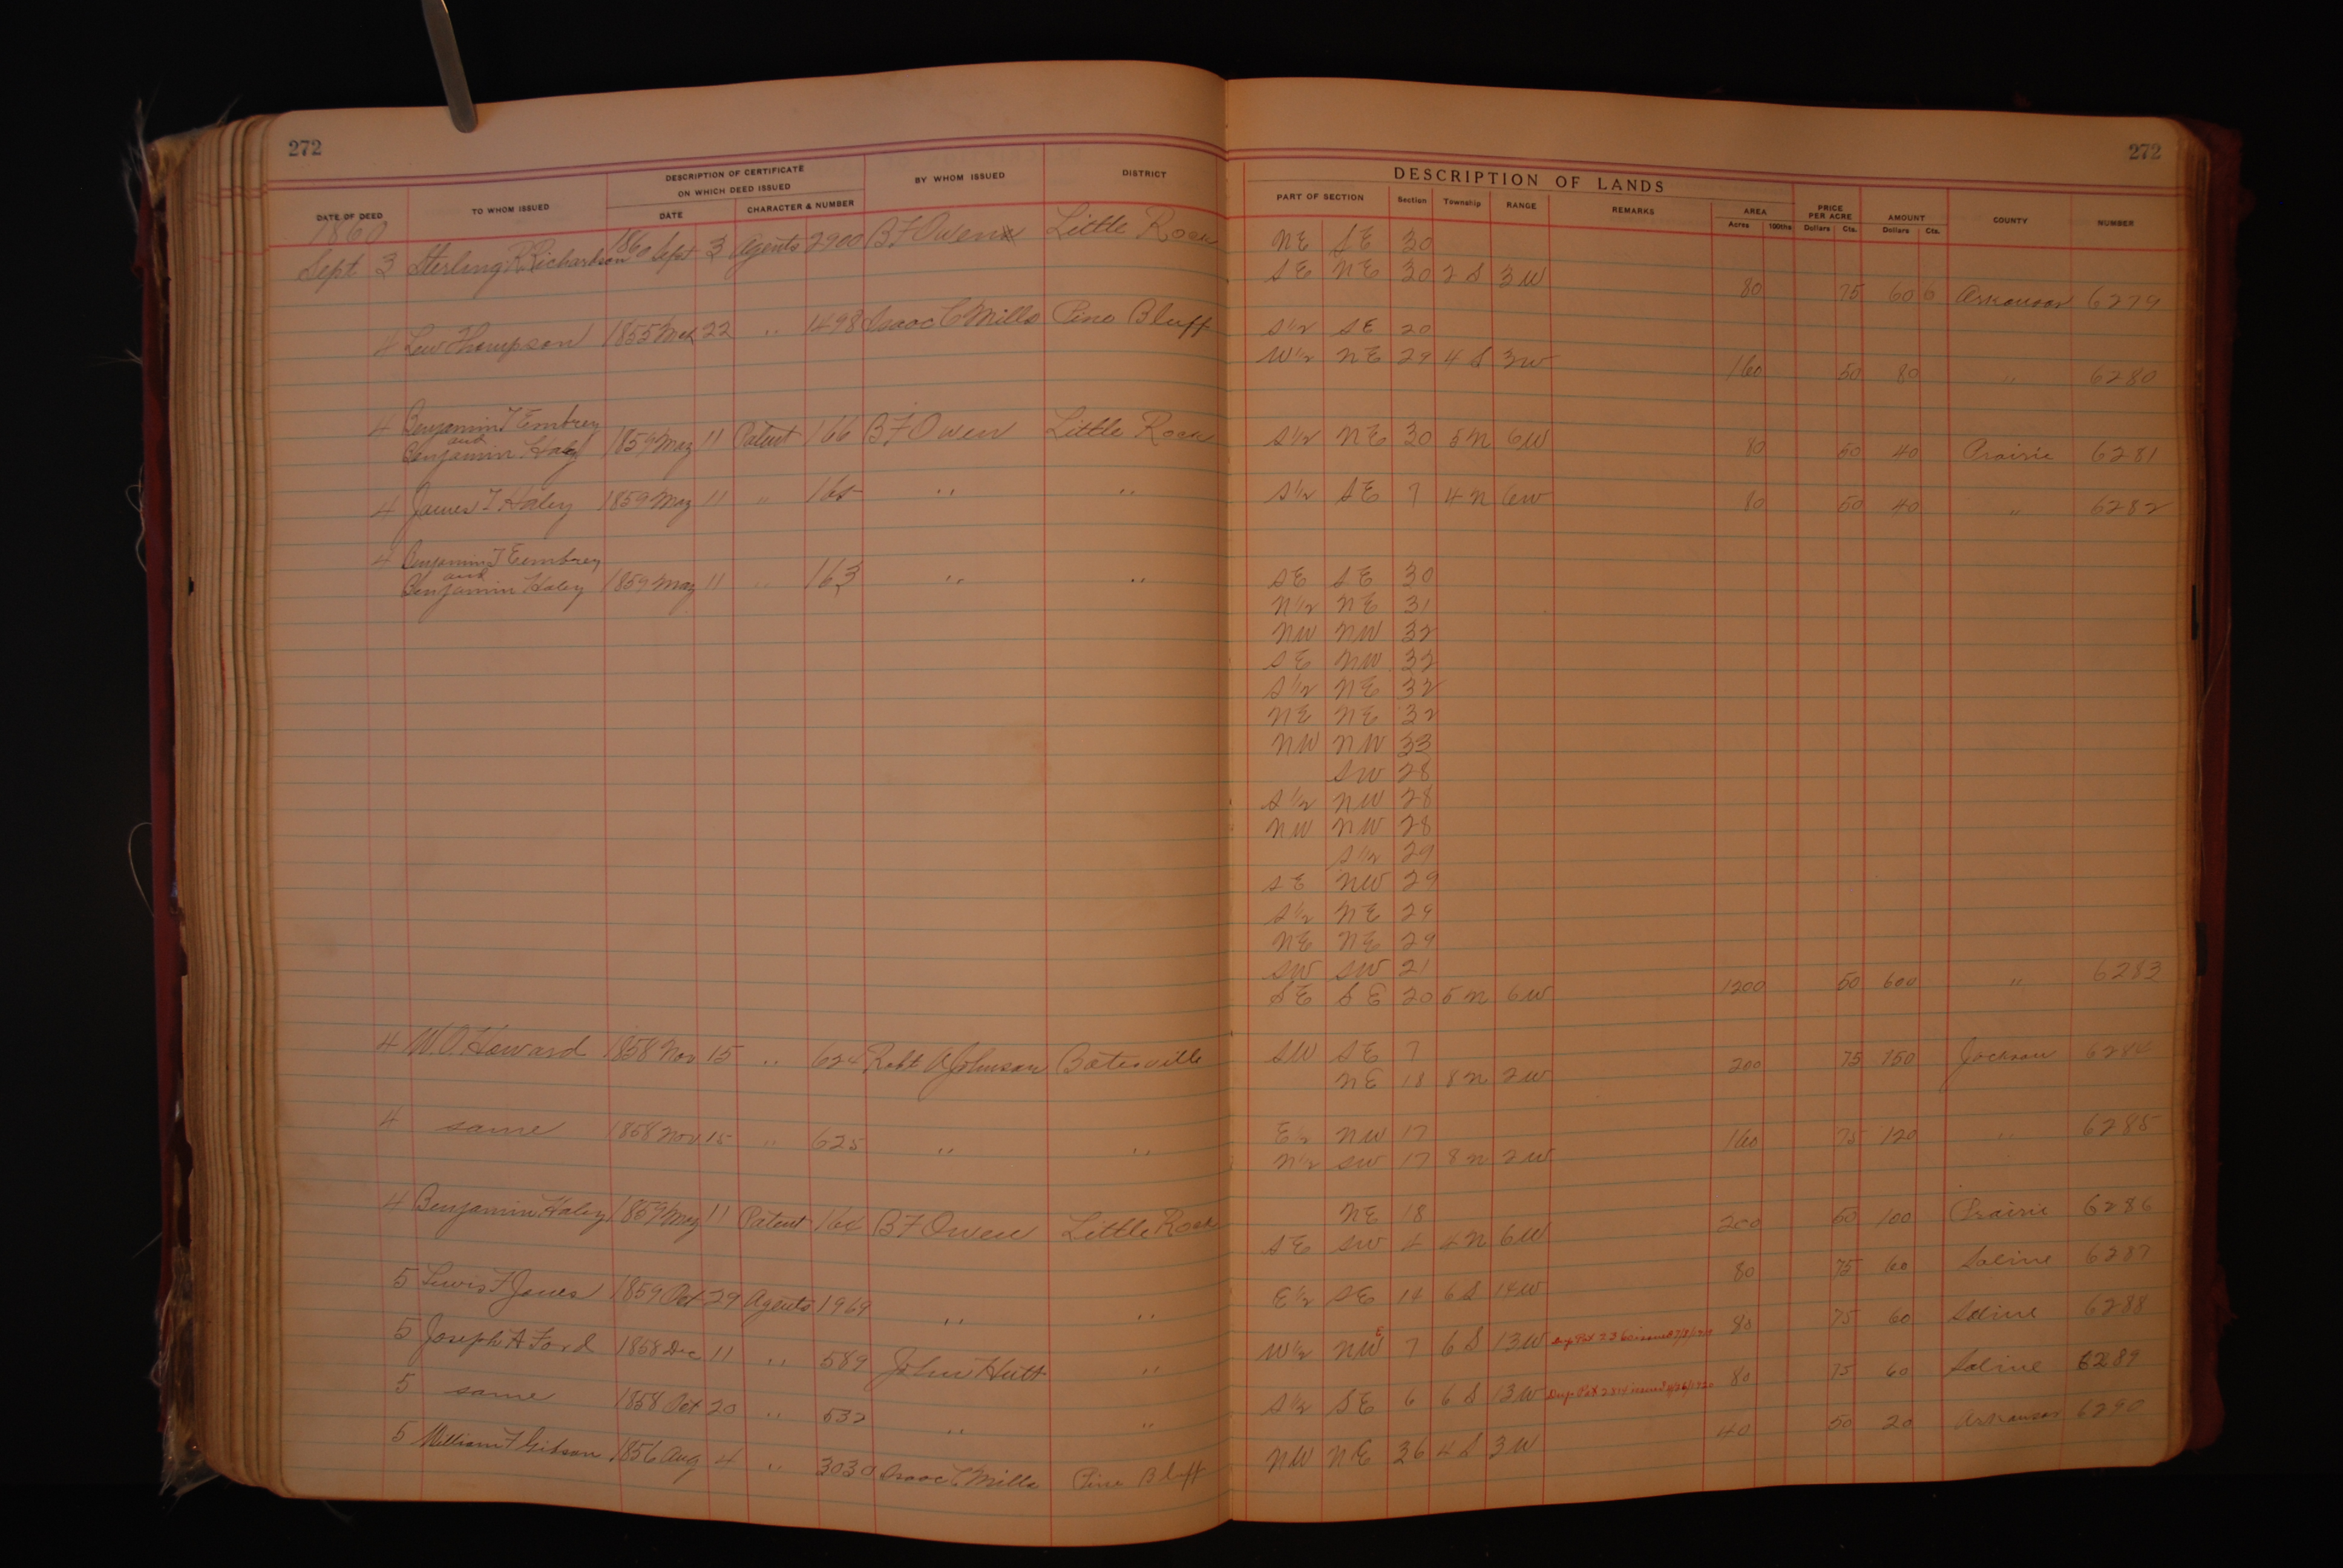 272
272
DATE OF DEED
TO WHOM ISSUED
DESCRIPTION OF CERTIFICATE
ON WHICH DEED ISSUED
DATE
CHARACTER & NUMBER
BY WHOM ISSUED
DISTRICT
DESCRIPTION OF LANDS
PART OF SECTION
Section
Township
RANGE
REMARKS
AREA
Acres
100ths
PRICE
PER ACRE
Dollars
Cts.
AMOUNT
Dollars
Cts.
COUNTY
NUMBER
1860
Sept 3 Sterling R. Richardson 1860 Sept 3 Agents 2900 B F Owen Little Rock NE SE 30
SE NE 30 2 S 3 W 80 75 60 6 Arkansas 6279
4 Lew Thompson 1855 Mch 22 " 1498 Isaac C Mills Pine Bluff S 1/2 SE 20
W 1/2 NE 29 4 S 3W 160 50 80 " 6280
4 Benjamin T Embrey
and
Benjamin Haley 1859 May 11 Patent 166 B F Owen Little Rock S 1/2 NE 30 5 N 6W 80 50 40 Prairie 6281
4 James T Haley 1859 May 11 " 165 " " S 1/2 SE 7 4 N 6W 80 50 40 " 6282
4 Benjamin T Eembrey
and
Benjamin Haley 1859 May 11 " 163 " " SE SE 30
N 1/2 NE 31
NW NW 32
SE NW 32
S 1/2 NE 32
NE NE 32
NW NW 33
SW 28
S 1/2 NW 28
NW NW 28
S 1/2 29
SE NW 29
S 1/2 NE 29
NE NE 29
SW SW 21
SE SE 20 5 N 6W 1200 50 600 " 6283
4 W. O. Howard 1858 Nov 15 " 624 Robt A Johnson Batesville SW SE 7
NE 18 8 N 2W 200 75 150 Jackson 6284
4 same 1858 Nov 15 " 625 " " E 1/2 NW 17
N 1/2 SW 17 8 N 2W 160 75 120 " 6285
4 Benjamin Haley 1859 May 11 Patent 164 B F Owen Little Rock NE 18
SE SW 4 4 N 6W 200 50 100 Prairie 6286
5 Lewis F Jones 1859 Oct 29 Agents 1969 " " E 1/2 SE 14 6 S 14W 80 75 60 Saline 6287
5 Joseph A Ford 1858 Dec 11 " 589 John Hutt " W 1/2 NW E 7 6 S 13W 80 75 60 Saline 6288
5 same 1858 Oct 20 " 532 " " S 1/2 SE 6 6 S 13W 80 75 60 Saline 6289
5 William F Gibson 1856 Aug 4 " 3030 Isaac C Mills Pine Bluff NW NE 36 4 S 3W 40 50 20 Arkansas 6290